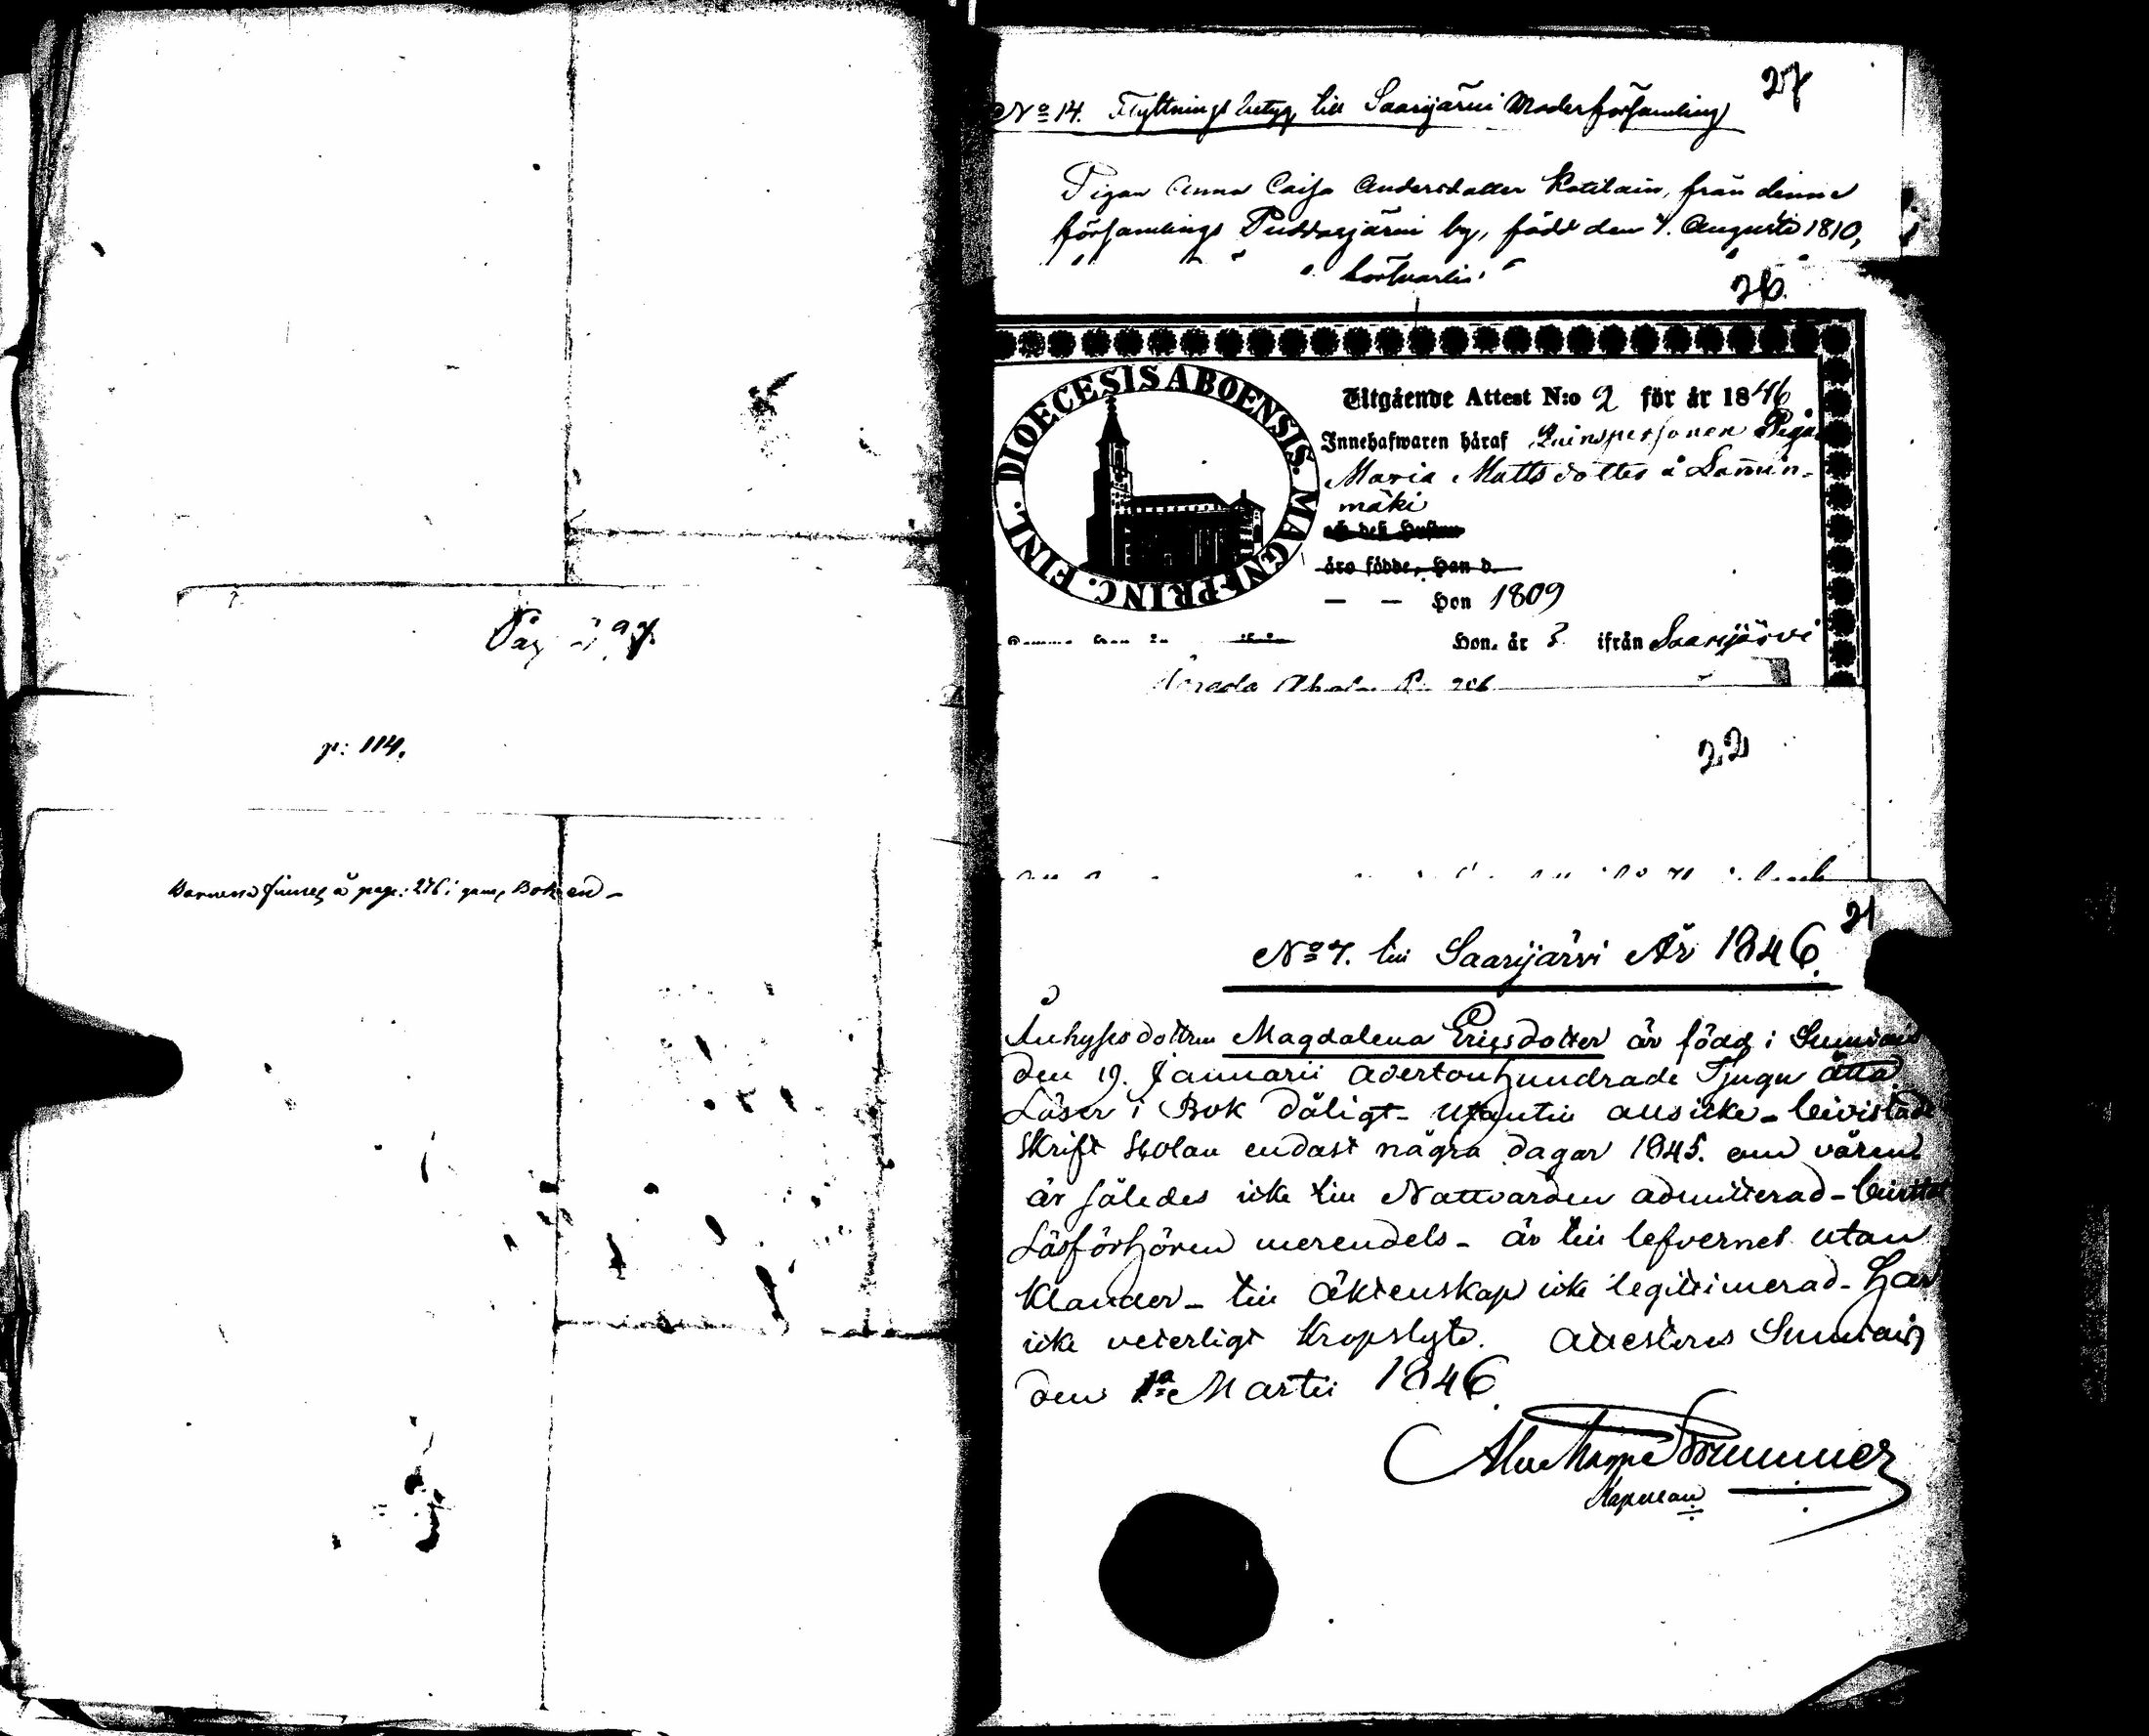 Pag 297.
p: 114.
Barnen finnes å pag: 276 i gamla Boken –
27
No 14. Flyttnings betyg till Saarijärvi Moderförsamling
Pigan Anna Caisa Andersdotter Kotilain, från denna
församlings Puddasjärvi by, född den 4. Augusti 1810,
26.
DIOECESIS ABOENSIS. MAGNI PRINC. FINL.
Utgående Attest N:o 2 för år 1846
Innehafwaren häraf Qvinspersonen Pigan
Maria Mattsdotter å Lamin-
mäki
och des Hustru
äro födde, Han d.
— — Hon 1809
Hon. år 3 ifrån Saarijärvi
22
21
No 7. till Saarijärvi År 1846.
Inhyses dottren Magdalena Ericsdotter är född i Sumiais
den 19. Januarii adertonhundrade Tjugu åtta
Läser i Bok dåligt – utantill alls icke – bevistade
Skrift Skolan endast några dagar 1845. om våren.
är således icke till Nattvarden admitterad – bevistat
Läsförhören merendels – är till lefvernet utan
Klander – till äktenskap icke legitimerad – Har
icke veterligt Kropslyte. Attesteras Sumiais
den 1a Martii 1846.
Brummer
Kapellan